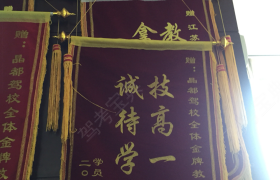 赠江苏
教
金
赠:晶都驾校全体金牌教
赠:晶都驾校全体金牌教
技高一
诚待学
学员
二〇